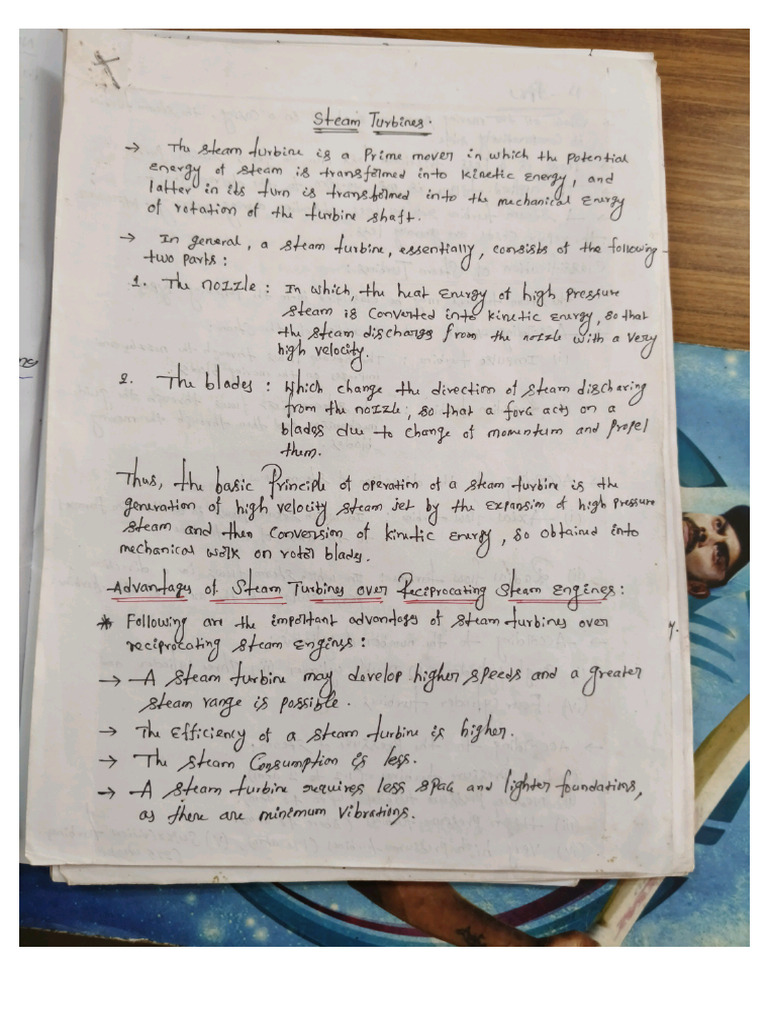 Steam Turbines.
→ The steam turbine is a Prime mover in which the potential
energy of steam is transformed into kinetic energy, and
latter in its turn is transformed into the mechanical energy
of rotation of the turbine shaft.
→ In general, a steam turbine, essentially, consists of the following
two parts:
1. The nozzle : In which, the heat energy of high pressure
steam is converted into kinetic energy, so that
the steam discharges from the nozzle with a very
high velocity.
2. The blades : Which change the direction of steam discharing
from the nozzle, so that a force acts on a
blades due to change of momentum and propel
them.
Thus, the basic Principle of operation of a steam turbine is the
generation of high velocity steam jet by the expansion of high pressure
steam and then conversion of kinetic energy, so obtained into
mechanical work on rotor blades.
Advantages of Steam Turbines over Reciprocating Steam Engines:
* Following are the important advantages of steam turbines over
reciprocating steam engines:
→ A steam turbine may develop higher speeds and a greater
steam range is possible.
→ The Efficiency of a steam turbine is higher.
→ The steam Consumption is less.
→ A steam turbine requires less space and lighter foundations,
as there are minimum vibrations.